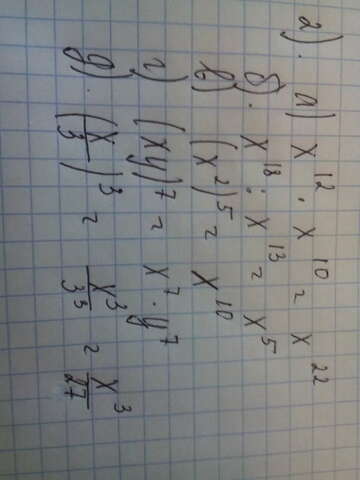 2). а) x¹² · x¹⁰ = x²²
б). x¹⁸ : x¹³ = x⁵
в) (x²)⁵ = x¹⁰
г) (xy)⁷ = x⁷ · y⁷
д). (x/3)³ = x³/3³ = x³/27